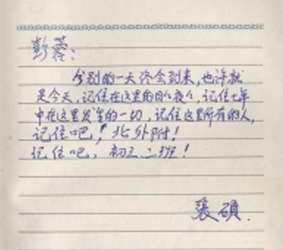 彭蓉:
分别的一天终会到来,也许就
是今天,记住在这里的日日夜夜,记住七年
中在这里发生的一切,记住这里所有的人,
记住吧,北外附!
记住吧,初三二班!
張碩.